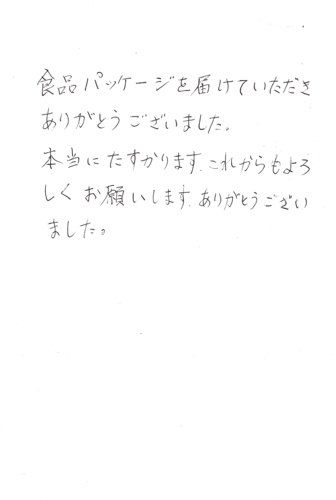 食品パッケージを届けていただき
ありがとうございました。
本当にたすかります.これからもよろ
しくお願いします.ありがとうござい
ました。